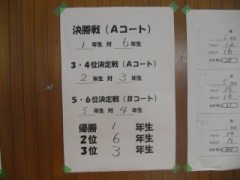 決勝戦(Aコート)
1年生 対 6年生
3・4位決定戦(Aコート)
2年生 対 3年生
5・6位決定戦(Bコート)
5年生 対 4年生
優勝 1 年生
2位 6 年生
3位 3 年生